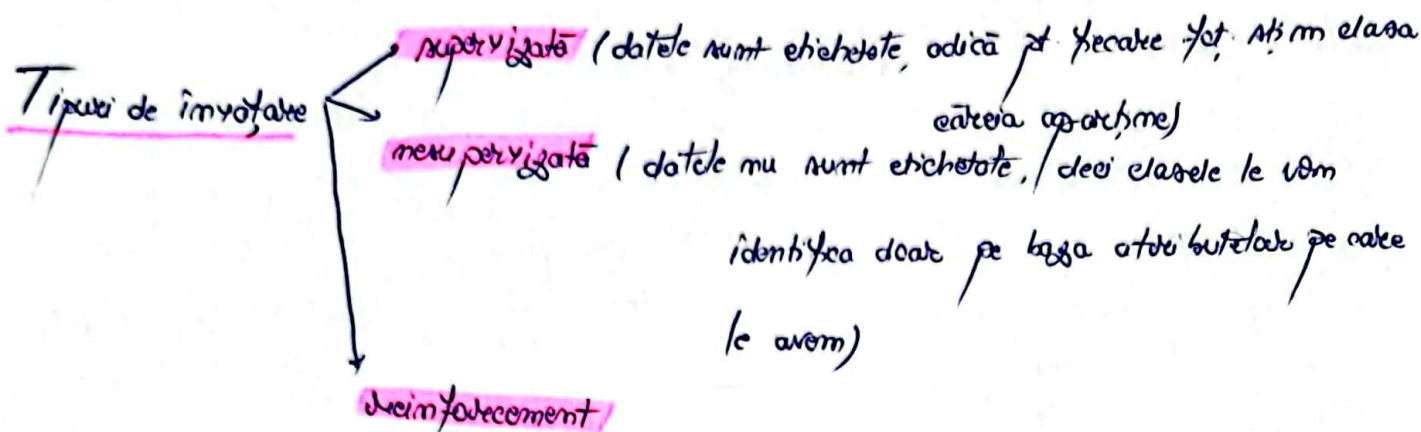 supervizată (datele sunt etichetate, adică pt fiecare țat știm clasa
Tipuri de învățare
căreia aparține)
nesupervizată (datele nu sunt etichetate, deci clasele le vom
identifica doar pe baza atributelor pe care
le avem)
reinforcement